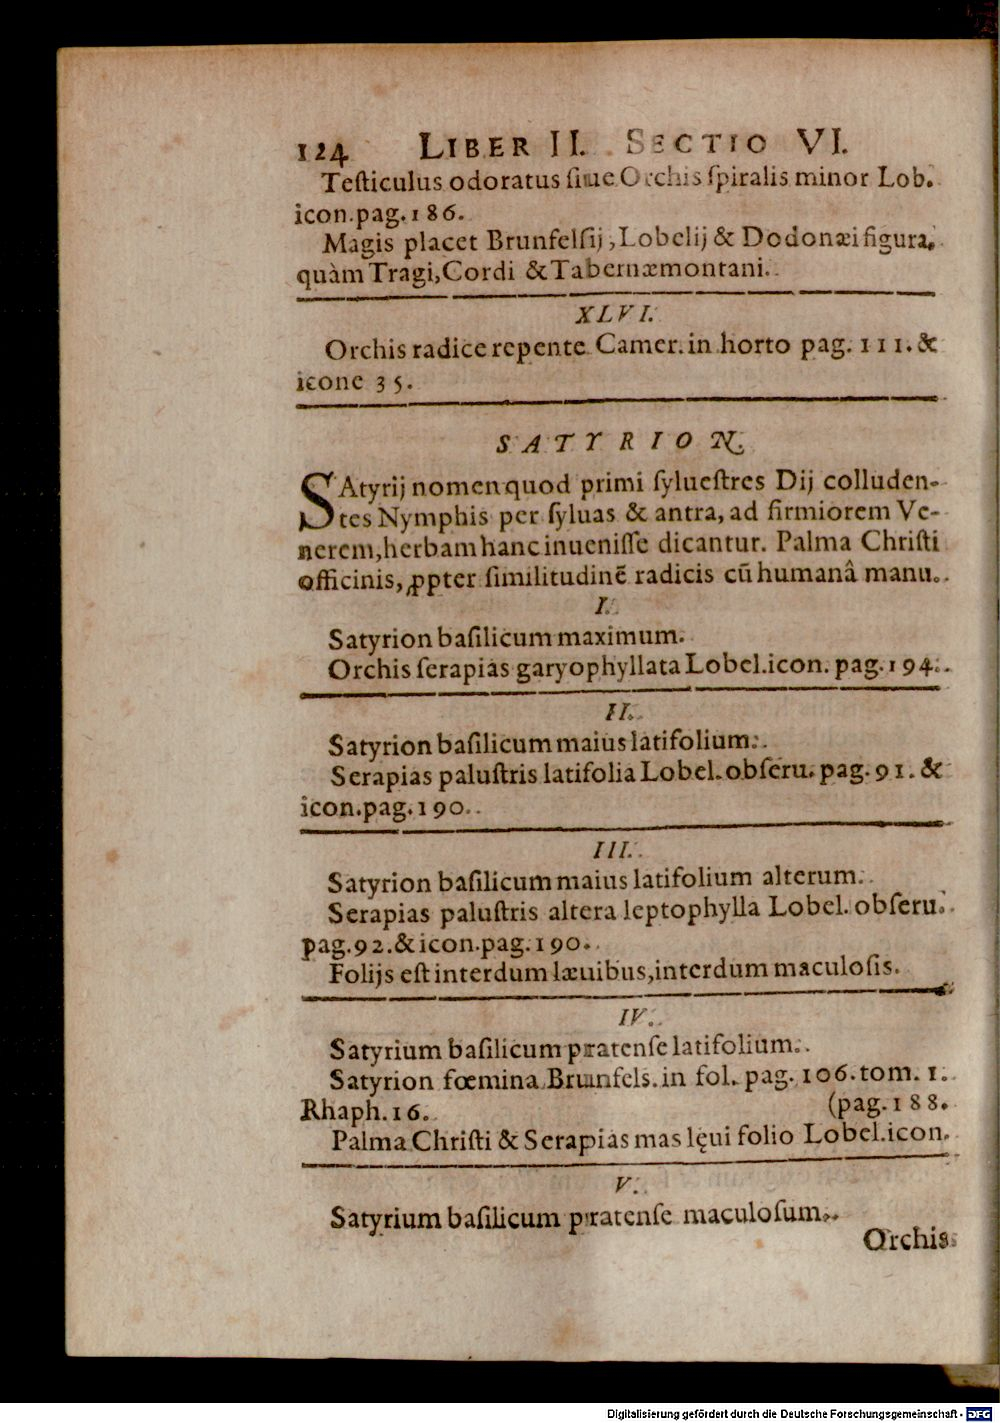 124 LIBER II. SECTIO VI.
Teſticulus odoratus ſiue Orchis ſpiralis minor Lob.
icon.pag.186.
Magis placet Brunfelſij, Lobelij & Dodonæi figura,
quàm Tragi, Cordi & Tabernæmontani.
XLVI.
Orchis radice repente Camer. in horto pag. 111. &
icone 35.
SATYRION.
SAtyrij nomen quod primi ſylueſtres Dij colluden-
tes Nymphis per ſyluas & antra, ad firmiorem Ve-
nerem, herbam hanc inueniſſe dicantur. Palma Chriſti
officinis, ꝓpter ſimilitudinē radicis cū humanâ manu.
I.
Satyrion baſilicum maximum.
Orchis ſerapias garyophyllata Lobel. icon. pag. 194.
II.
Satyrion baſilicum maius latifolium.
Serapias paluſtris latifolia Lobel. obſeru. pag. 91. &
icon. pag. 190.
III.
Satyrion baſilicum maius latifolium alterum.
Serapias paluſtris altera leptophylla Lobel. obſeru.
pag. 92. & icon. pag. 190.
Folijs eſt interdum læuibus, interdum maculoſis.
IV.
Satyrium baſilicum pratenſe latifolium.
Satyrion fœmina Brunfels. in fol. pag. 106. tom. 1.
Rhaph. 16. (pag. 188.
Palma Chriſti & Serapias mas lęui folio Lobel. icon.
V.
Satyrium baſilicum pratenſe maculoſum.
Orchis
Digitalisierung gefördert durch die Deutsche Forschungsgemeinschaft - DFG